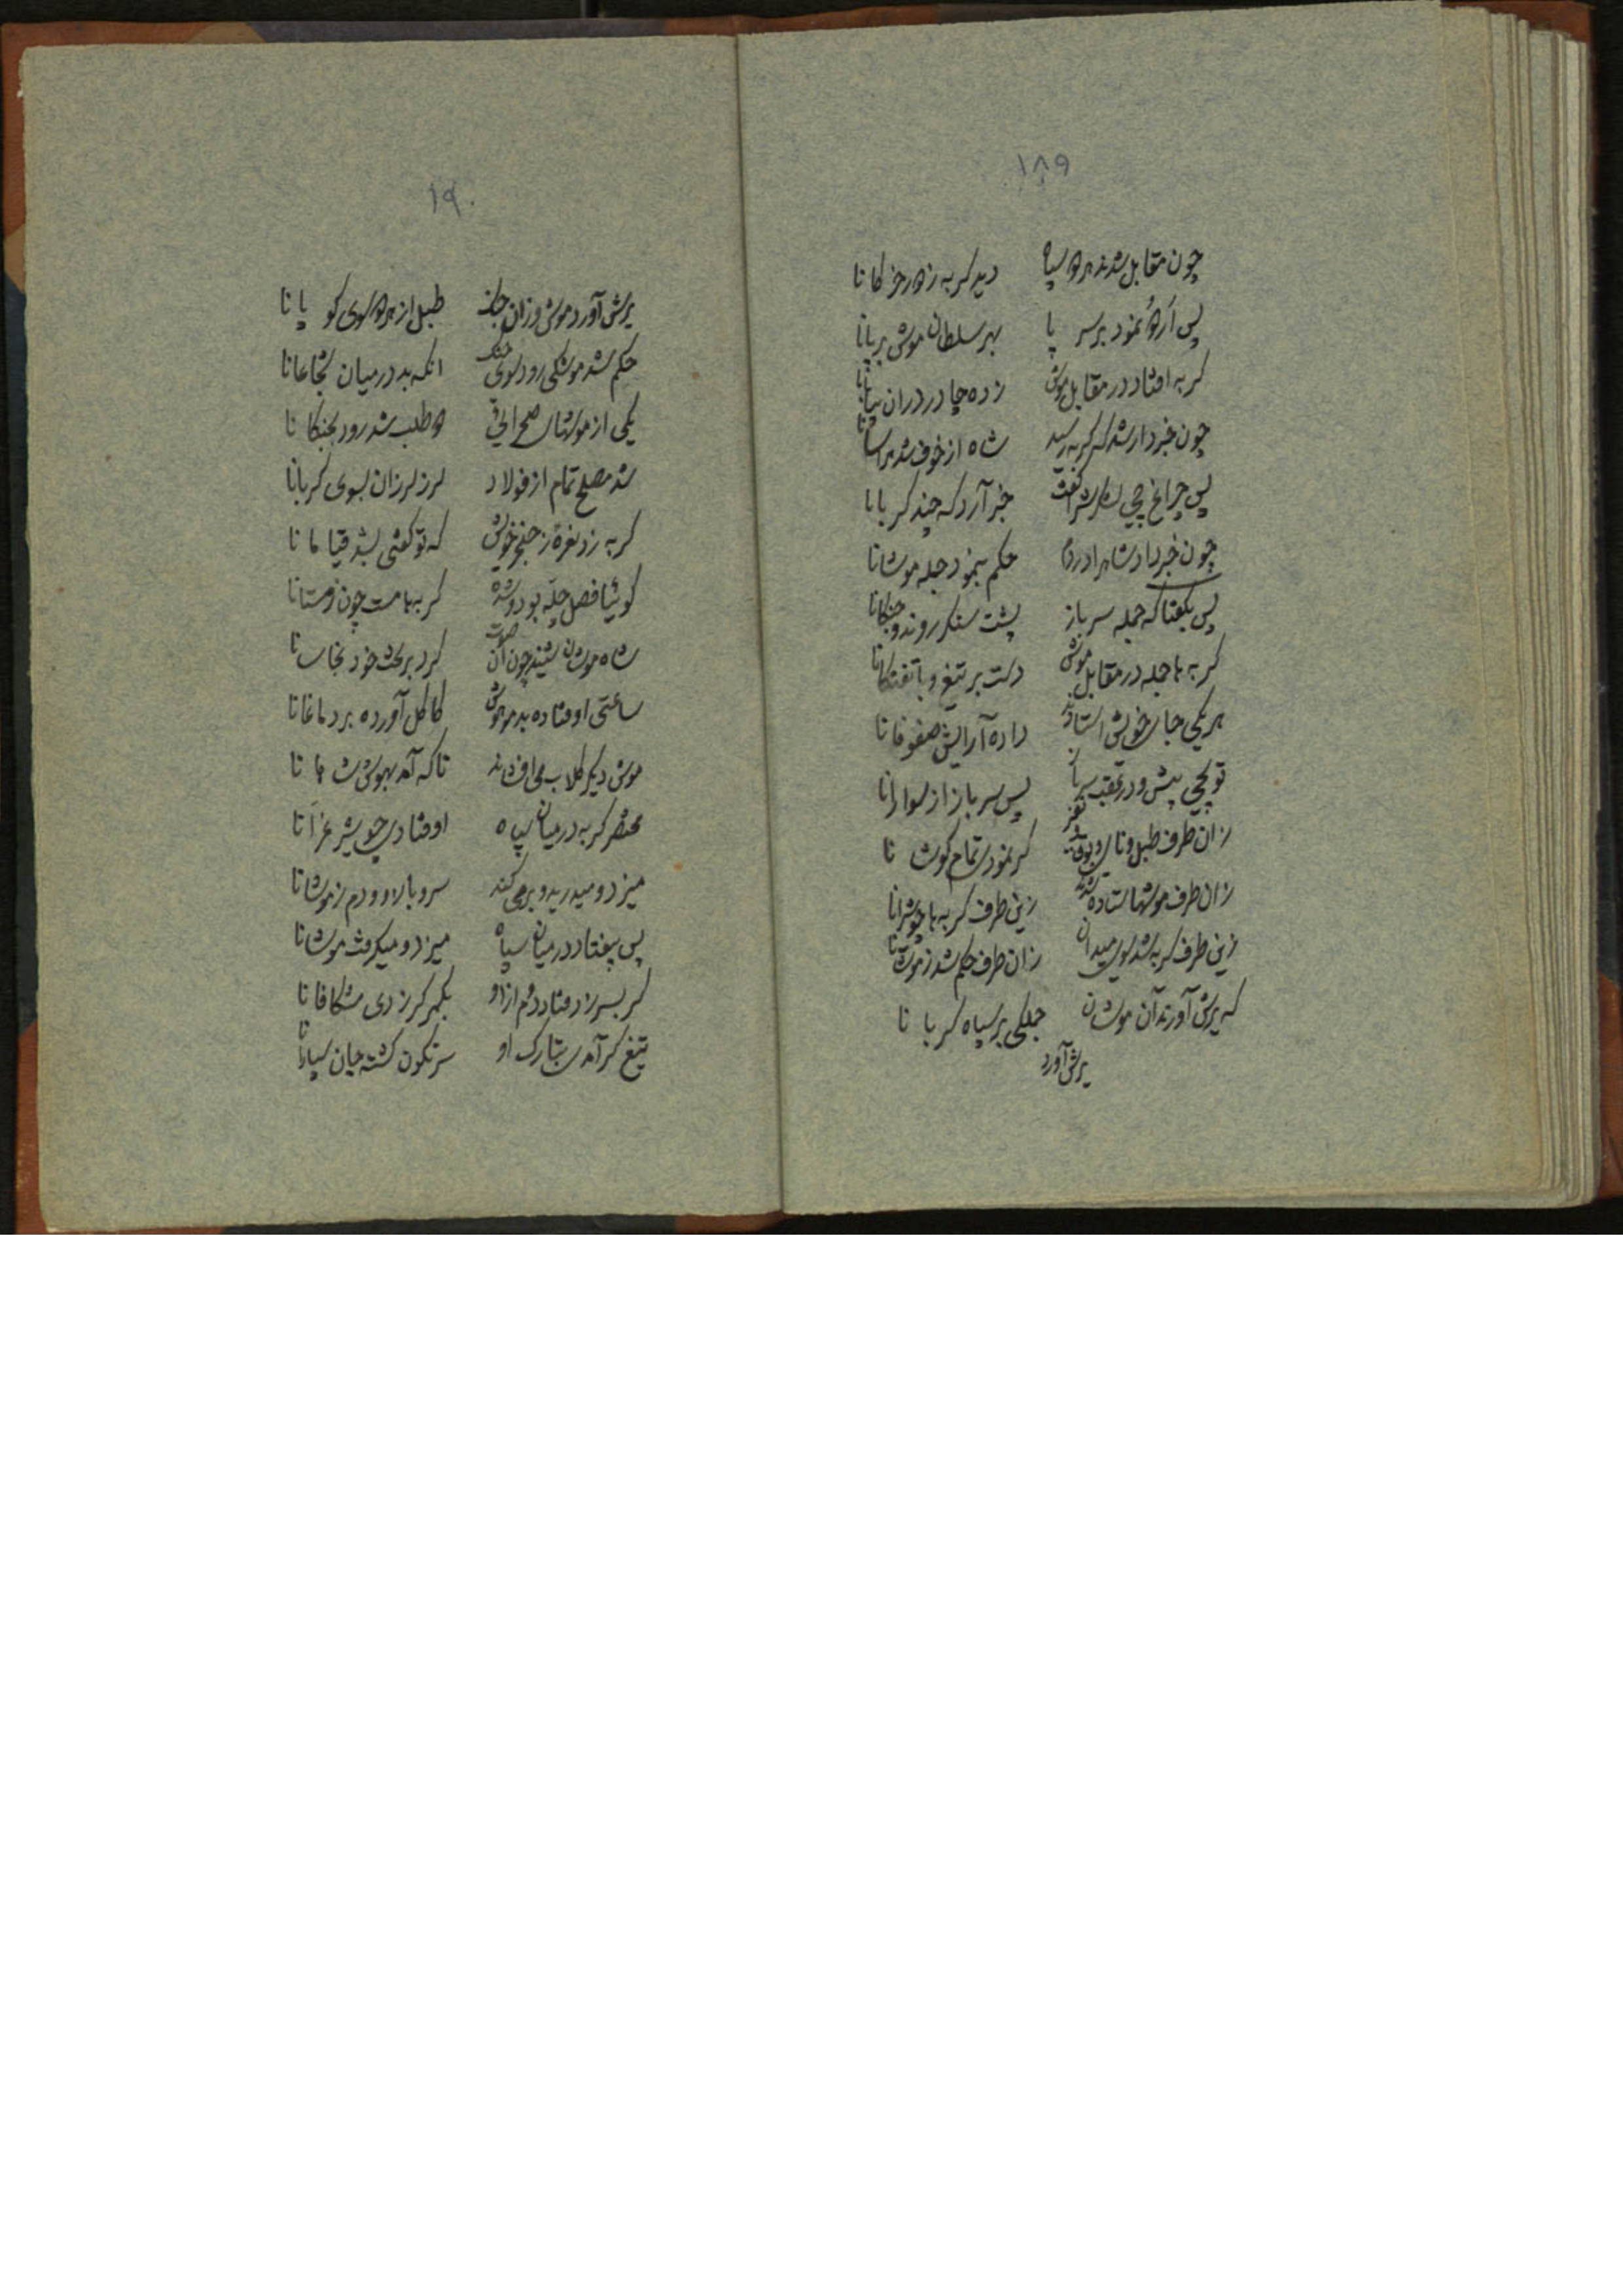 ۱۸۹
چون مقابل شدند هر دو سپاه دید گربه ز دور خرگانا
پس اردو نمود بر سر پا بهر سلطان موش برپانا
گربه افتاد در مقابل موش زده چادر دران بیابانا
چون خبردار شد که گربه رسید شاه از خوف شد هراسانا
پس چراغ چی لشکرش را گفت خبر آرد که چند گربانا
چون خبر داد شاه را در دم حکم بنمود جمله موشانا
پس بگفتا که جمله سرباز پشت سنگر روند و جنگانا
گربه ها جمله در مقابل موش دست بر تیغ و با تفنگانا
هر یکی جای خویش استادند داده آرایش صفوفانا
توپچی پیش و در عقب سرباز پس سرباز از سوارانا
زان طرف طبل و نای و بوق نفیر کر نمودی تمام گوشانا
زان طرف موشها ستاده شدند زین طرف گربه ها چو شیرانا
زین طرف گربه شد بسوی میدان زان طرف حکم شد ز موشانا
که یرش آورند آن موشان جملگی بر سپاه گربانا
یرش آورد
۱۹۰
یرش آورد موش وزان جانب طبل از هر دو سوی کوپانا
حکم شد موشکی رود سوی جنگ انکه بد در میان شجاعانا
یکی از موشهای صحرائی دو طلب شد رود بجنگانا
شد مصلح تمام از فولاد لرز لرزان بسوی گربانا
گربه زد نعرهٔ ز خنج خویش که تو گفتی بشد قیامانا
گوئیا فصل چلّه بود و شده گربه ها مست چون زمستانا
شاه موشان شنید چون آن صوت کرد بر تخت خود نجاسانا
ساعتی اوفتاده بد مدهوش کاکل آورده بر دماغانا
موش دیگر گلاب می افشاند تا که آمد بهوش شاهانا
مختصر گربه در میان سپاه اوفتادی چو شیر غرّانا
میزد و میدرید و برمی کند سر و بالا و دم ز موشانا
پس بیفتاد در میان سپاه میزد و میگرفت موشانا
گر بسر زد فتاد دم از او بکمر گر زدی شکافانا
تیغ گر آمدی بتارک او سرنگون گشته جان سپارانا